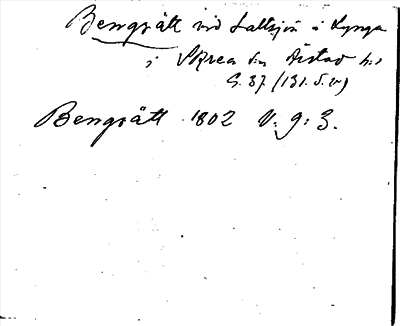 Bengsått vid Saltsjön i Lynga
i Skrea sn Årstad hd
S. 37 (131. S. v)
Bengsått 1802 V: 9: 3.